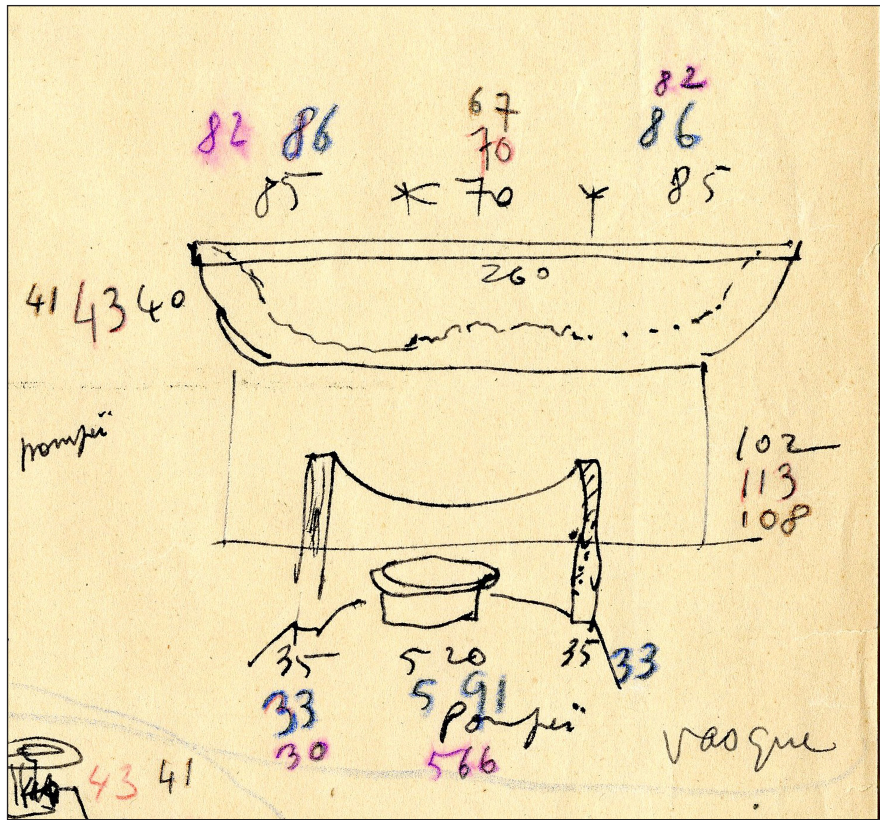 82
67
82 86 70 86
85 70 85
260
41 43 40
pompeï
102
113
108
35 520 35 33
33 591
Pompeï
30 566
vasque
43 41